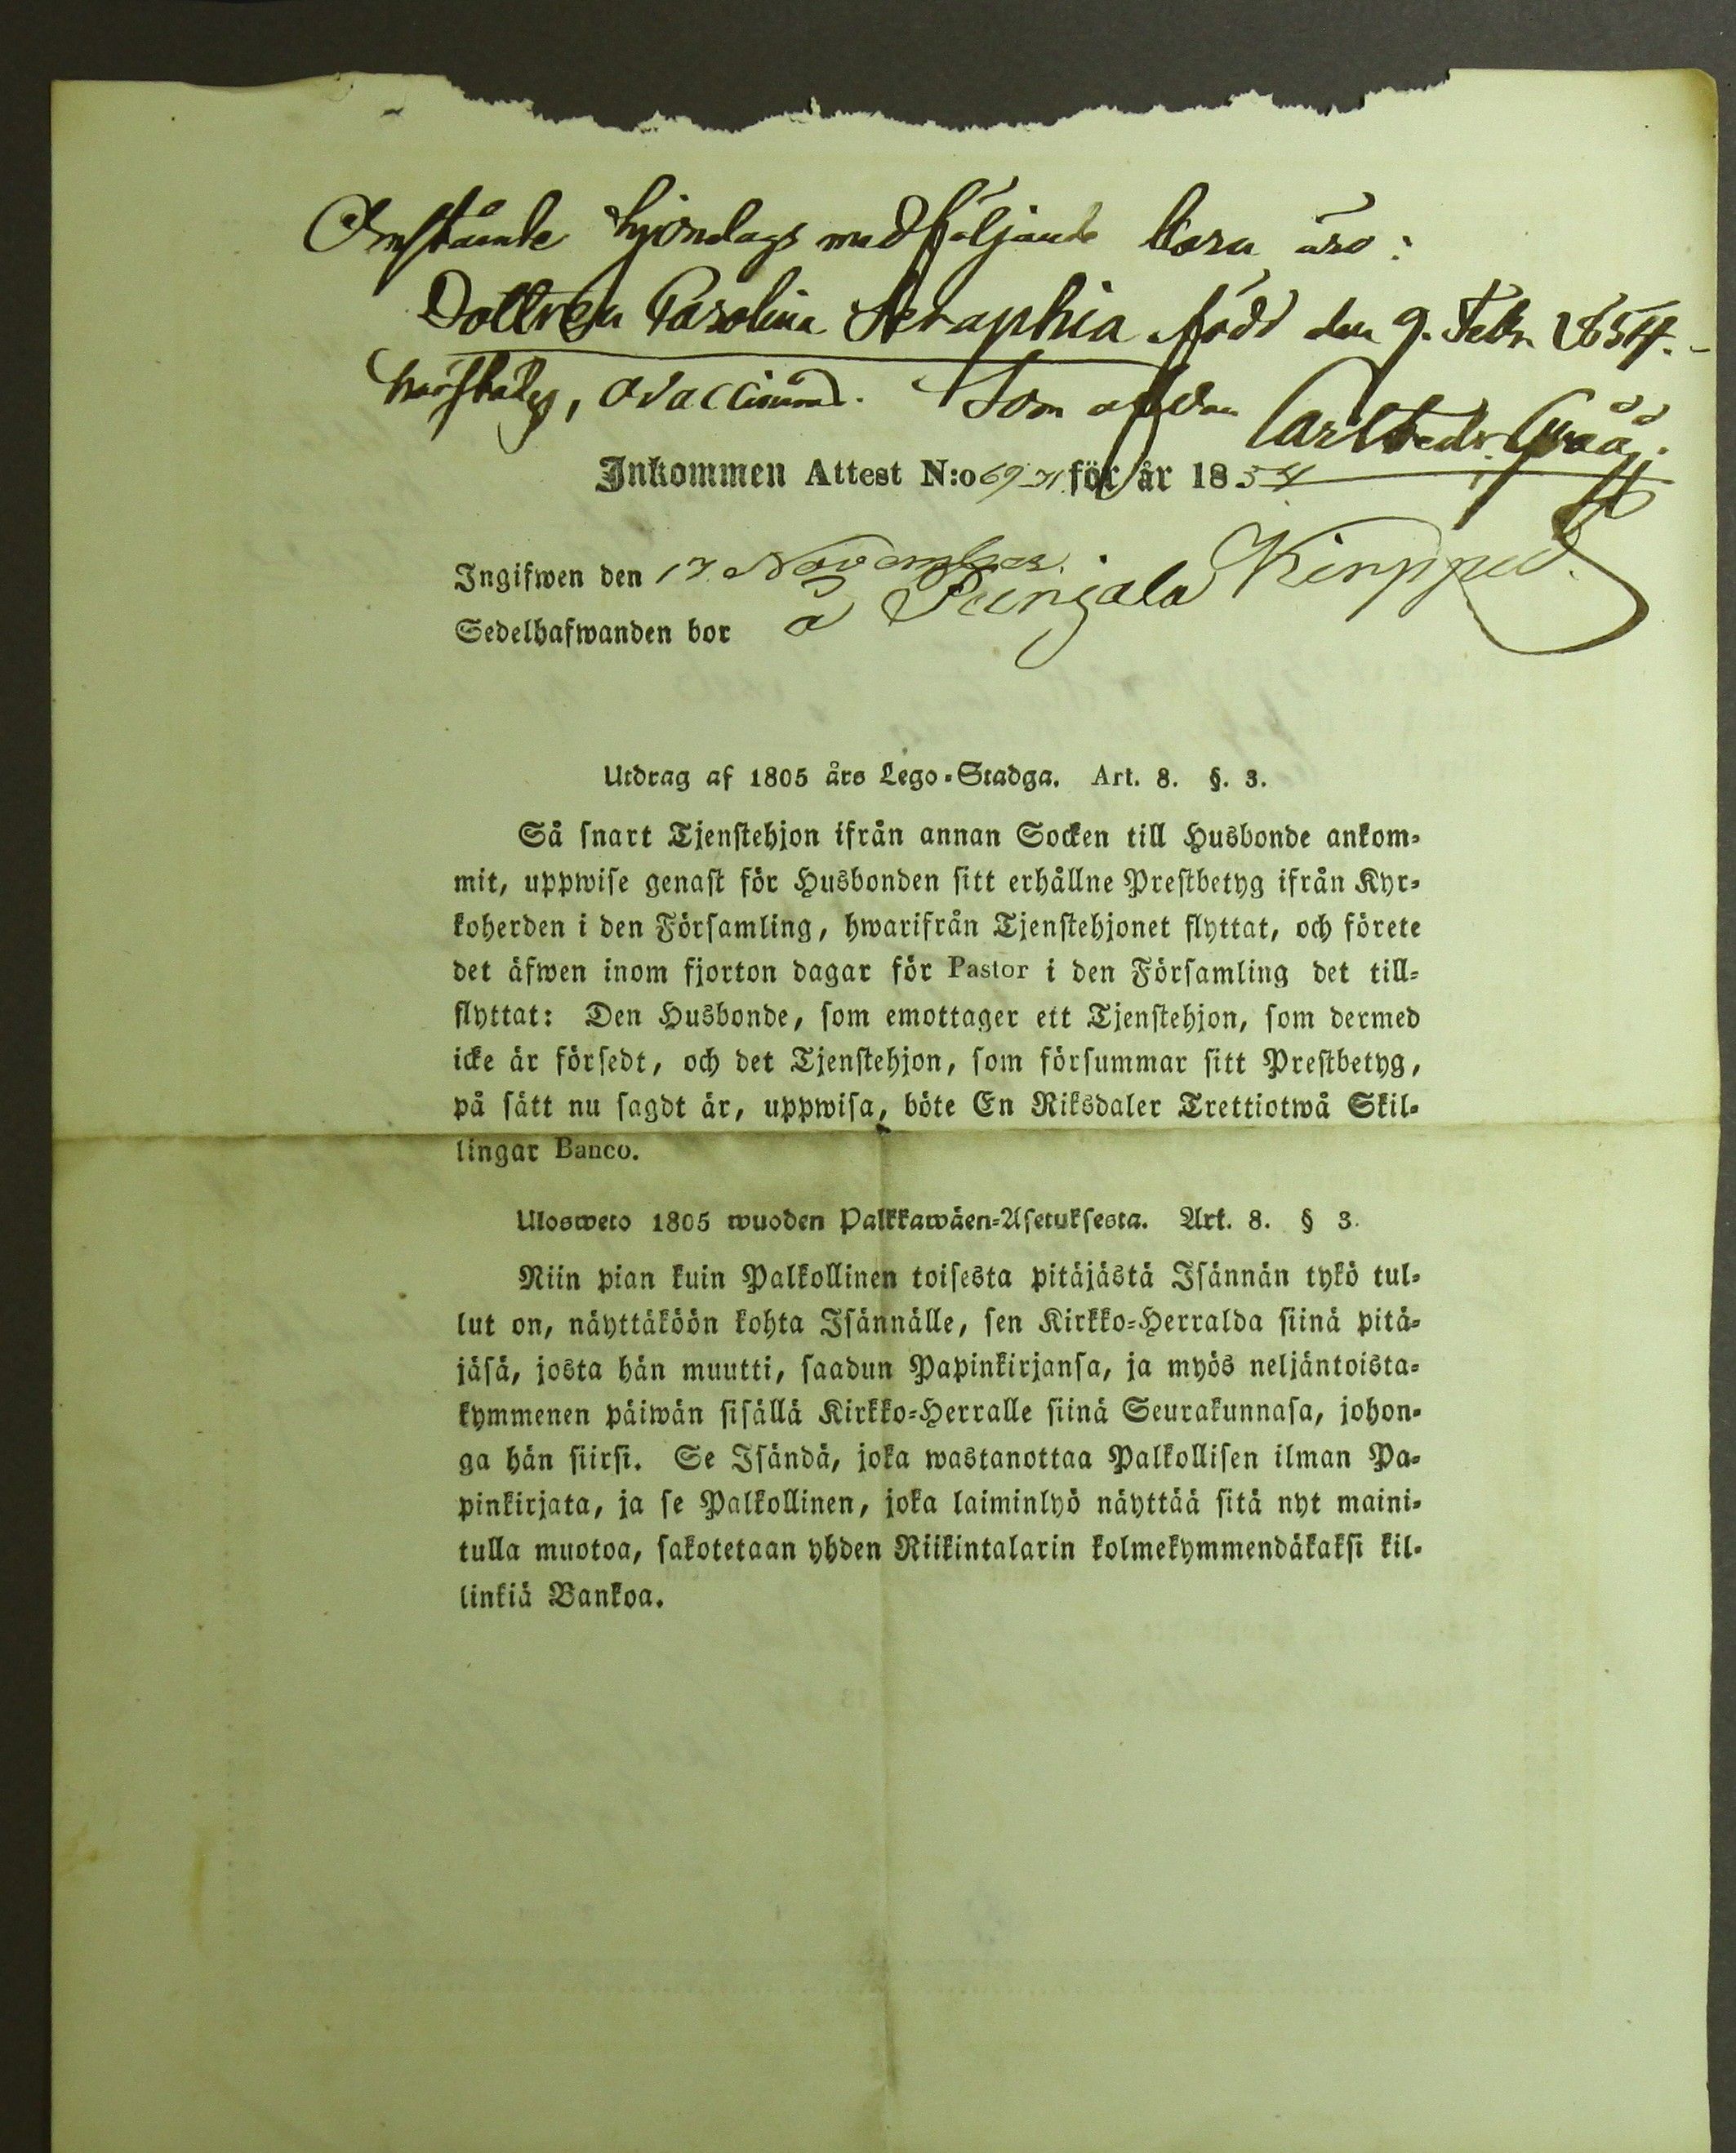 Omstående hjonelags medföljande barn äro:
Dottren Carolina Seraphia född den 9. Febr. 1854.
ovaccinerad. Som
Inkommen Attest N:o 69 för år 1854
Ingifwen den 17 November.
Sedelhafwanden bor å Punjala
Utdrag af 1805 års Lego-Stadga. Art. 8. §. 3.
Så snart Tjenstehjon ifrån annan Socken till Husbonde ankom-
mit, uppwise genast för Husbonden sitt erhållne Prestbetyg ifrån Kyr-
koherden i den Församling, hwarifrån Tjenstehjonet flyttat, och förete
det äfwen inom fjorton dagar för Pastor i den Församling det till-
flyttat: Den Husbonde, som emottager ett Tjenstehjon, som dermed
icke är försedt, och det Tjenstehjon, som försummar sitt Prestbetyg,
på sätt nu sagdt är, uppwisa, böte En Riksdaler Trettiotwå Skil-
lingar Banco.
Ulosweto 1805 wuoden Palkkawäen-Asetuksesta. Art. 8. § 3.
Niin pian kuin Palkollinen toisesta pitäjästä Isännän tykö tul-
lut on, näyttäköön kohta Isännälle, sen Kirkko-Herralda siinä pitä-
jäsä, josta hän muutti, saadun Papinkirjansa, ja myös neljäntoista-
kymmenen päiwän sisällä Kirkko-Herralle siinä Seurakunnasa, johon-
ga hän siirsi. Se Isändä, joka wastanottaa Palkollisen ilman Pa-
pinkirjata, ja se Palkollinen, joka laiminlyö näyttää sitä nyt maini-
tulla muotoa, sakotetaan yhden Riikintalarin kolmekymmendäkaksi kil-
linkiä Bankoa.